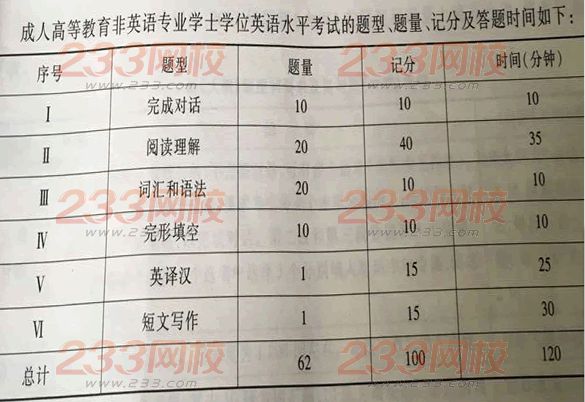 成人高等教育非英语专业学士学位英语水平考试的题型、题量、记分及答题时间如下:
序号 题型 题量 记分 时间(分钟)
Ⅰ 完成对话 10 10 10
Ⅱ 阅读理解 20 40 35
Ⅲ 词汇和语法 20 10 10
Ⅳ 完形填空 10 10 10
Ⅴ 英译汉 1 15 25
Ⅵ 短文写作 1 15 30
总计 62 100 120
233网校
www.233.com
233网校
www.233.com
233网校
www.233.com
233网校
www.233.com
233网校
www.233.com
233网校
www.233.com